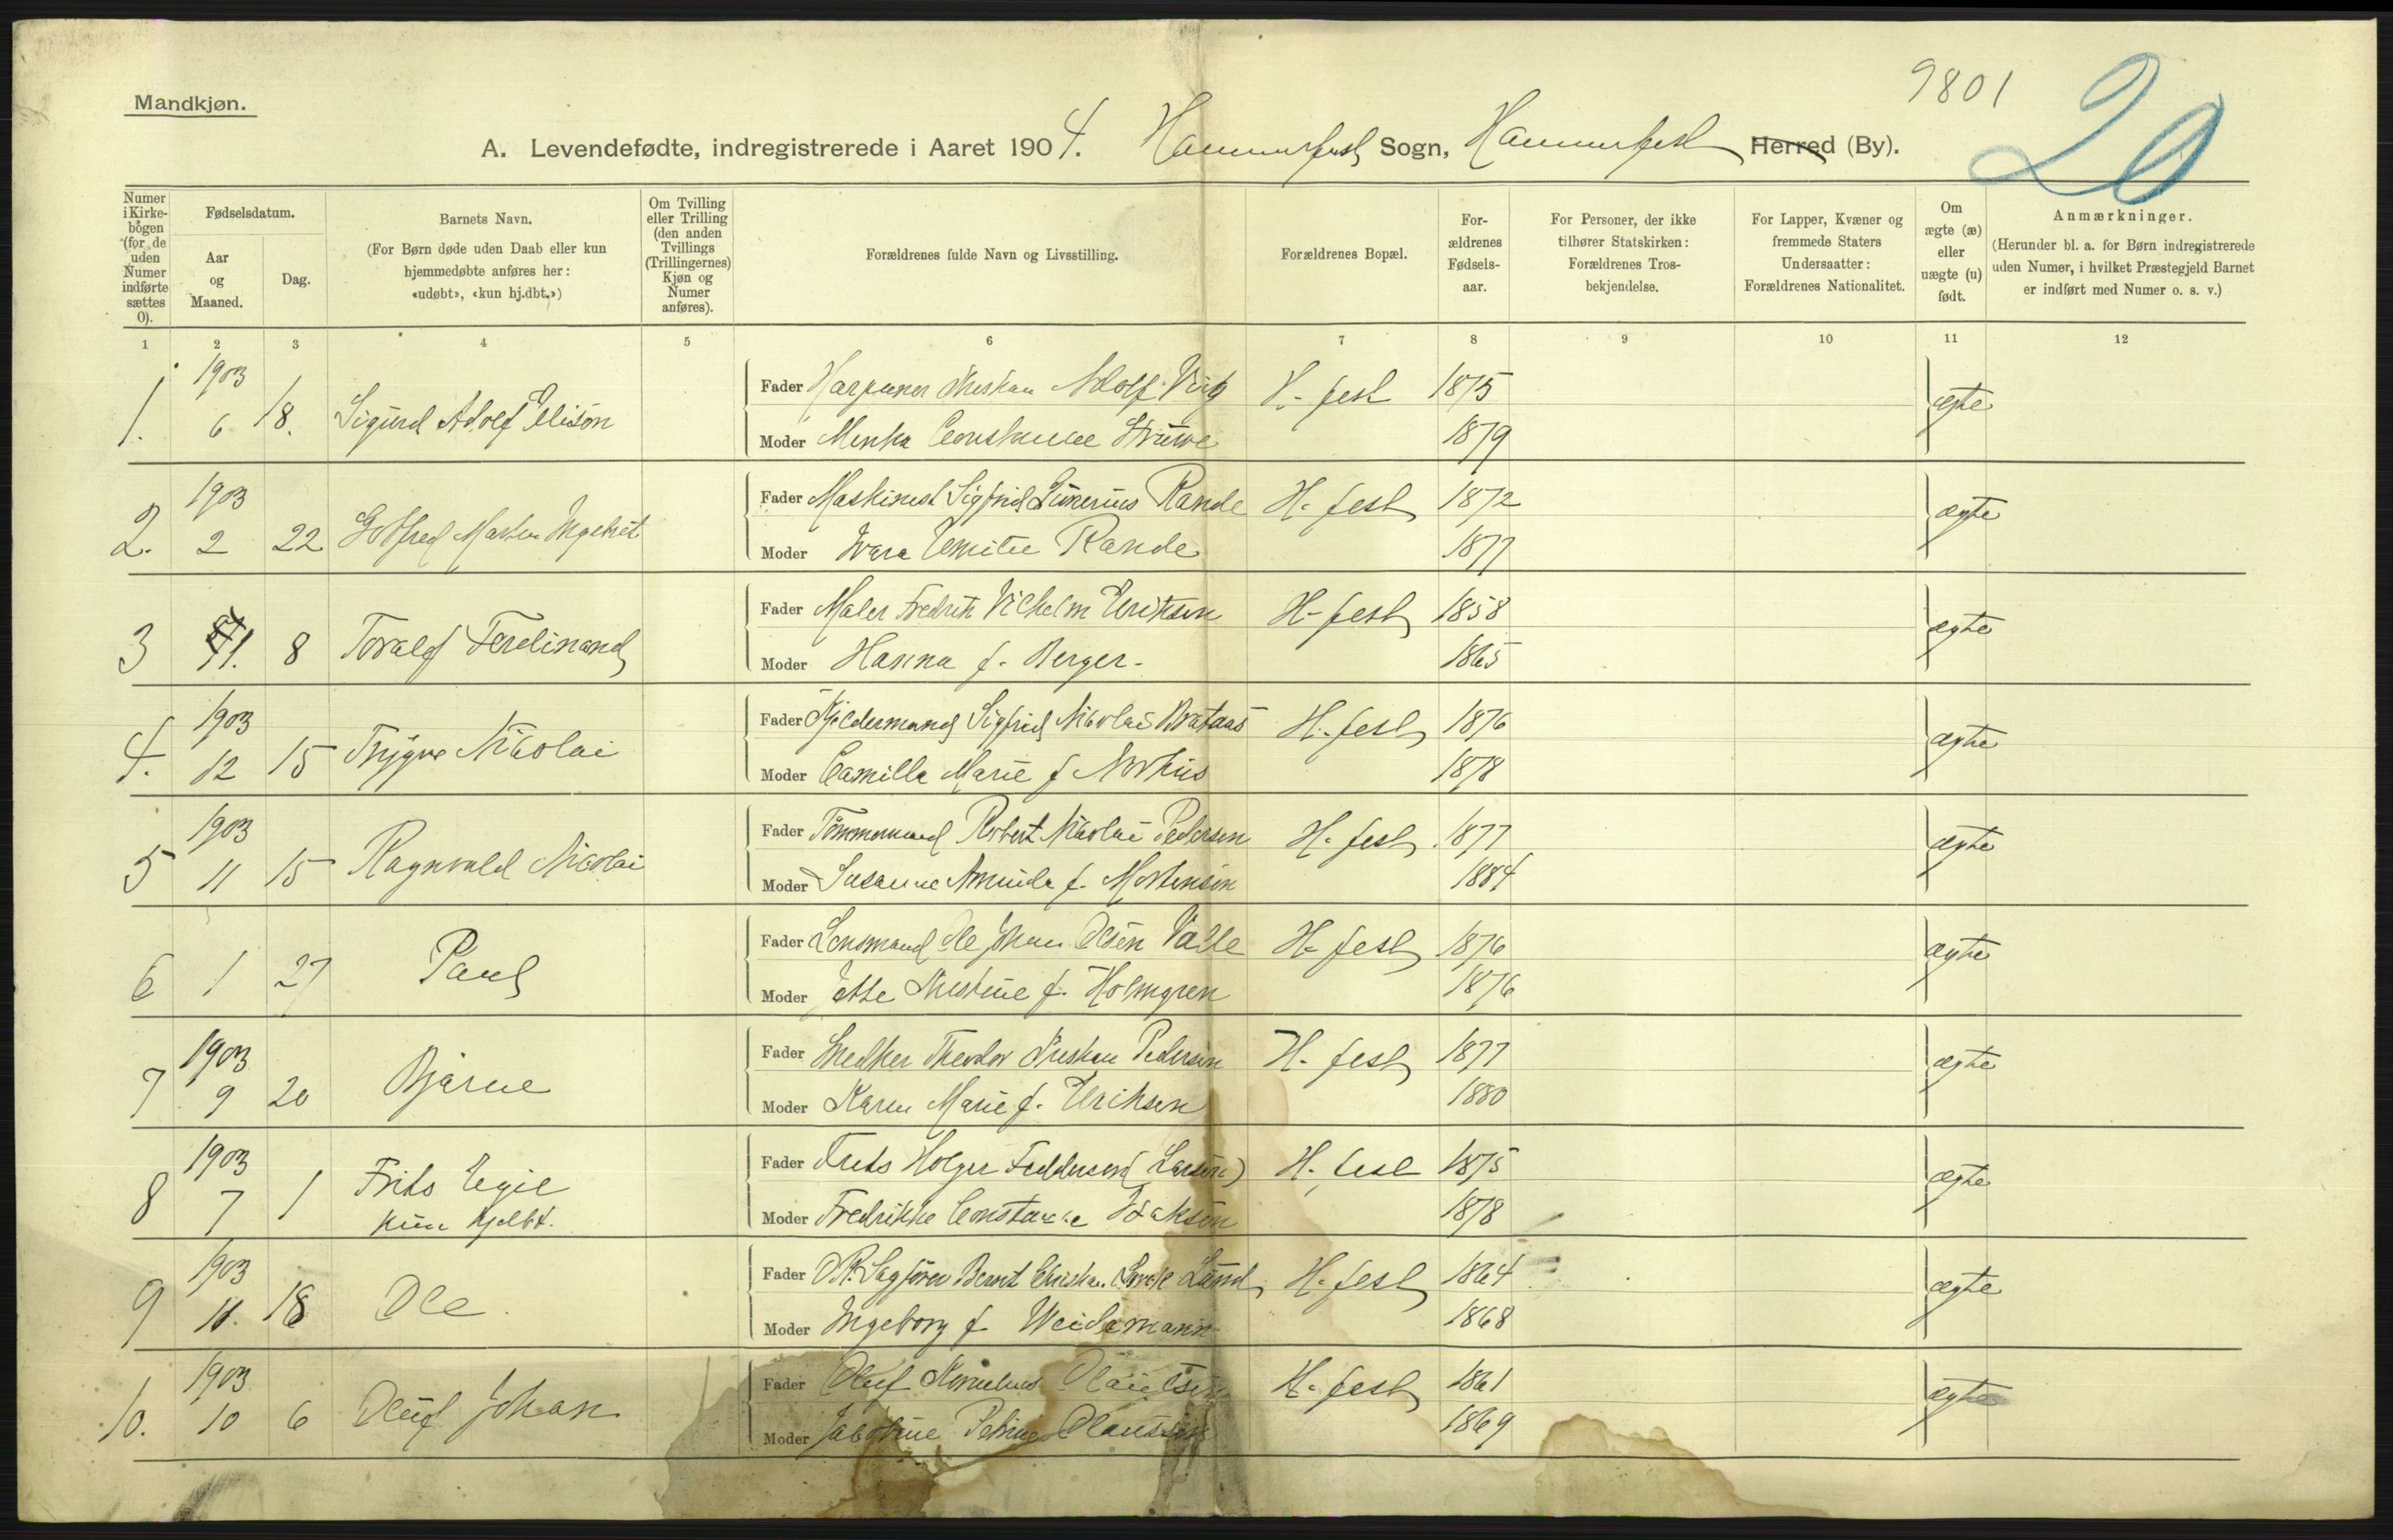 9801
20
Mandkjøn.
A. Levendefødte, indregistrerede i Aaret 1904. Hammerfest Sogn, Hammerfest Herred (By).
Numer i Kirkebogen (for de uden Numer indførte sættes 0).
Fødselsdatum.
Aar og Maaned.
Dag.
Barnets Navn.
(For Børn døde uden Daab eller kun hjemmedøbte anføres her: «udøbt», «kun hj.dbt.»)
Om Tvilling eller Trilling (den anden Tvillings (Trillingernes) Kjøn og Numer anføres).
Forældrenes fulde Navn og Livsstilling.
Forældrenes Bopæl.
Forældrenes Fødselsaar.
For Personer, der ikke tilhører Statskirken: Forældrenes Trosbekjendelse.
For Lapper, Kvæner og fremmede Staters Undersaatter: Forældrenes Nationalitet.
Om ægte (æ) eller uægte (u) født.
Anmærkninger.
(Herunder bl. a. for Børn indregistrerede uden Numer, i hvilket Præstegjeld Barnet er indført med Numer o. s. v.)
1 2 3 4 5 6 7 8 9 10 11 12
1. 1903 6 18. Sigurd Adolf Elison
Fader Harpuner Kristian Adolf H-fest 1875 ægte
Moder Minka Constance Struwe 1879
2. 1903 2 22 Gotfred Martin Ingebret
Fader Maskinist Sigfrid Rande H-fest 1872 ægte
Moder Emilie Rande 1877
3 11. 8 Toralf Ferdinand
Fader Maler Fredrik Vilhelm Eriksen H-fest 1858 ægte
Moder Hanna f. Berger- 1865
4. 1903 12 15 Trygve Nikolai
Fader Sigfrid Nikolai Brataas H-fest 1876 ægte
Moder Camilla Marie f. 1878
5 1903 11 15 Ragnvald Nicolai
Fader Tømmermand Robert Nikolai Pedersen H-fest 1877 ægte
Moder Susanne Amanda f. Mortensen 1884
6 1 27 Paul
Fader Lensmand Ole Johan Olsen Valle H-fest 1876 ægte
Moder Jette Kristine f. Holmgren 1876
7 1903 9 20 Bjarne
Fader Snedker Theodor Kristian Pedersen H-fest 1877 ægte
Moder Karen Marie f. Eriksen 1880
8 1903 7 1 Frits Egil
kun hjdbt.
Fader Frits Holger Feddersen (Larsen) H-fest 1875 ægte
Moder Fredrikke Constance Isaksen 1878
9 1903 11. 18 Ole
Fader O.R. Sagfører Bernt Lund H-fest 1864 ægte
Moder Ingeborg f. Weidemann 1868
10. 1903 10 6 Oluf Johan
Fader Oluf Kornelius Olaussen H-fest 1861 ægte
Moder Jacobine Petrine Olaussen 1869